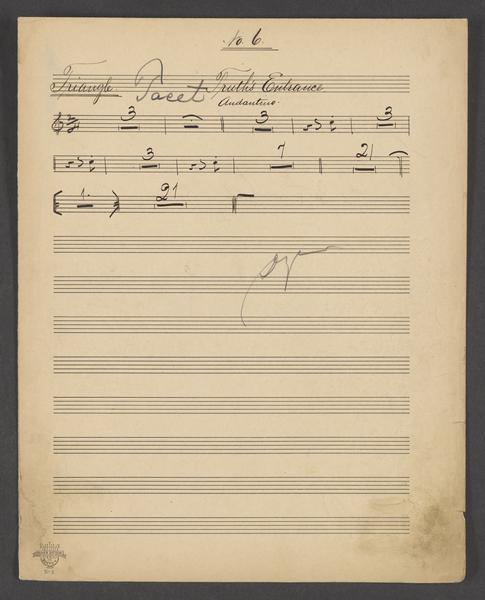 No. 6.
Triangle. Tacet Truth's Entrance
Andantino.
3 3 3
3 7 21
1. 21
No 2